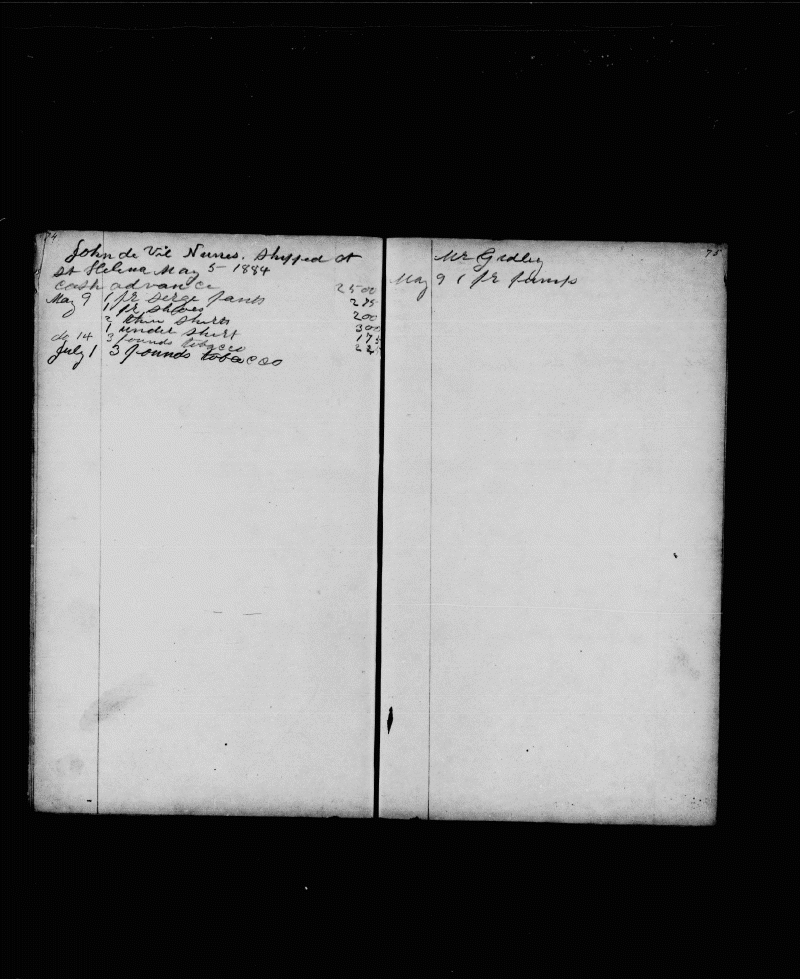 74
John de Vil Nunes. Shipped at
St Helena May 5 - 1884
cash advance 2500
May 9 1 pr serge pants 275
1 pr shoes 200
2 thin shirts 300
1 under shirt 175
do 14 3 pounds tobacco
July 1 3 pounds tobacco
75
Mr Gidley
May 9 1 pr pumps